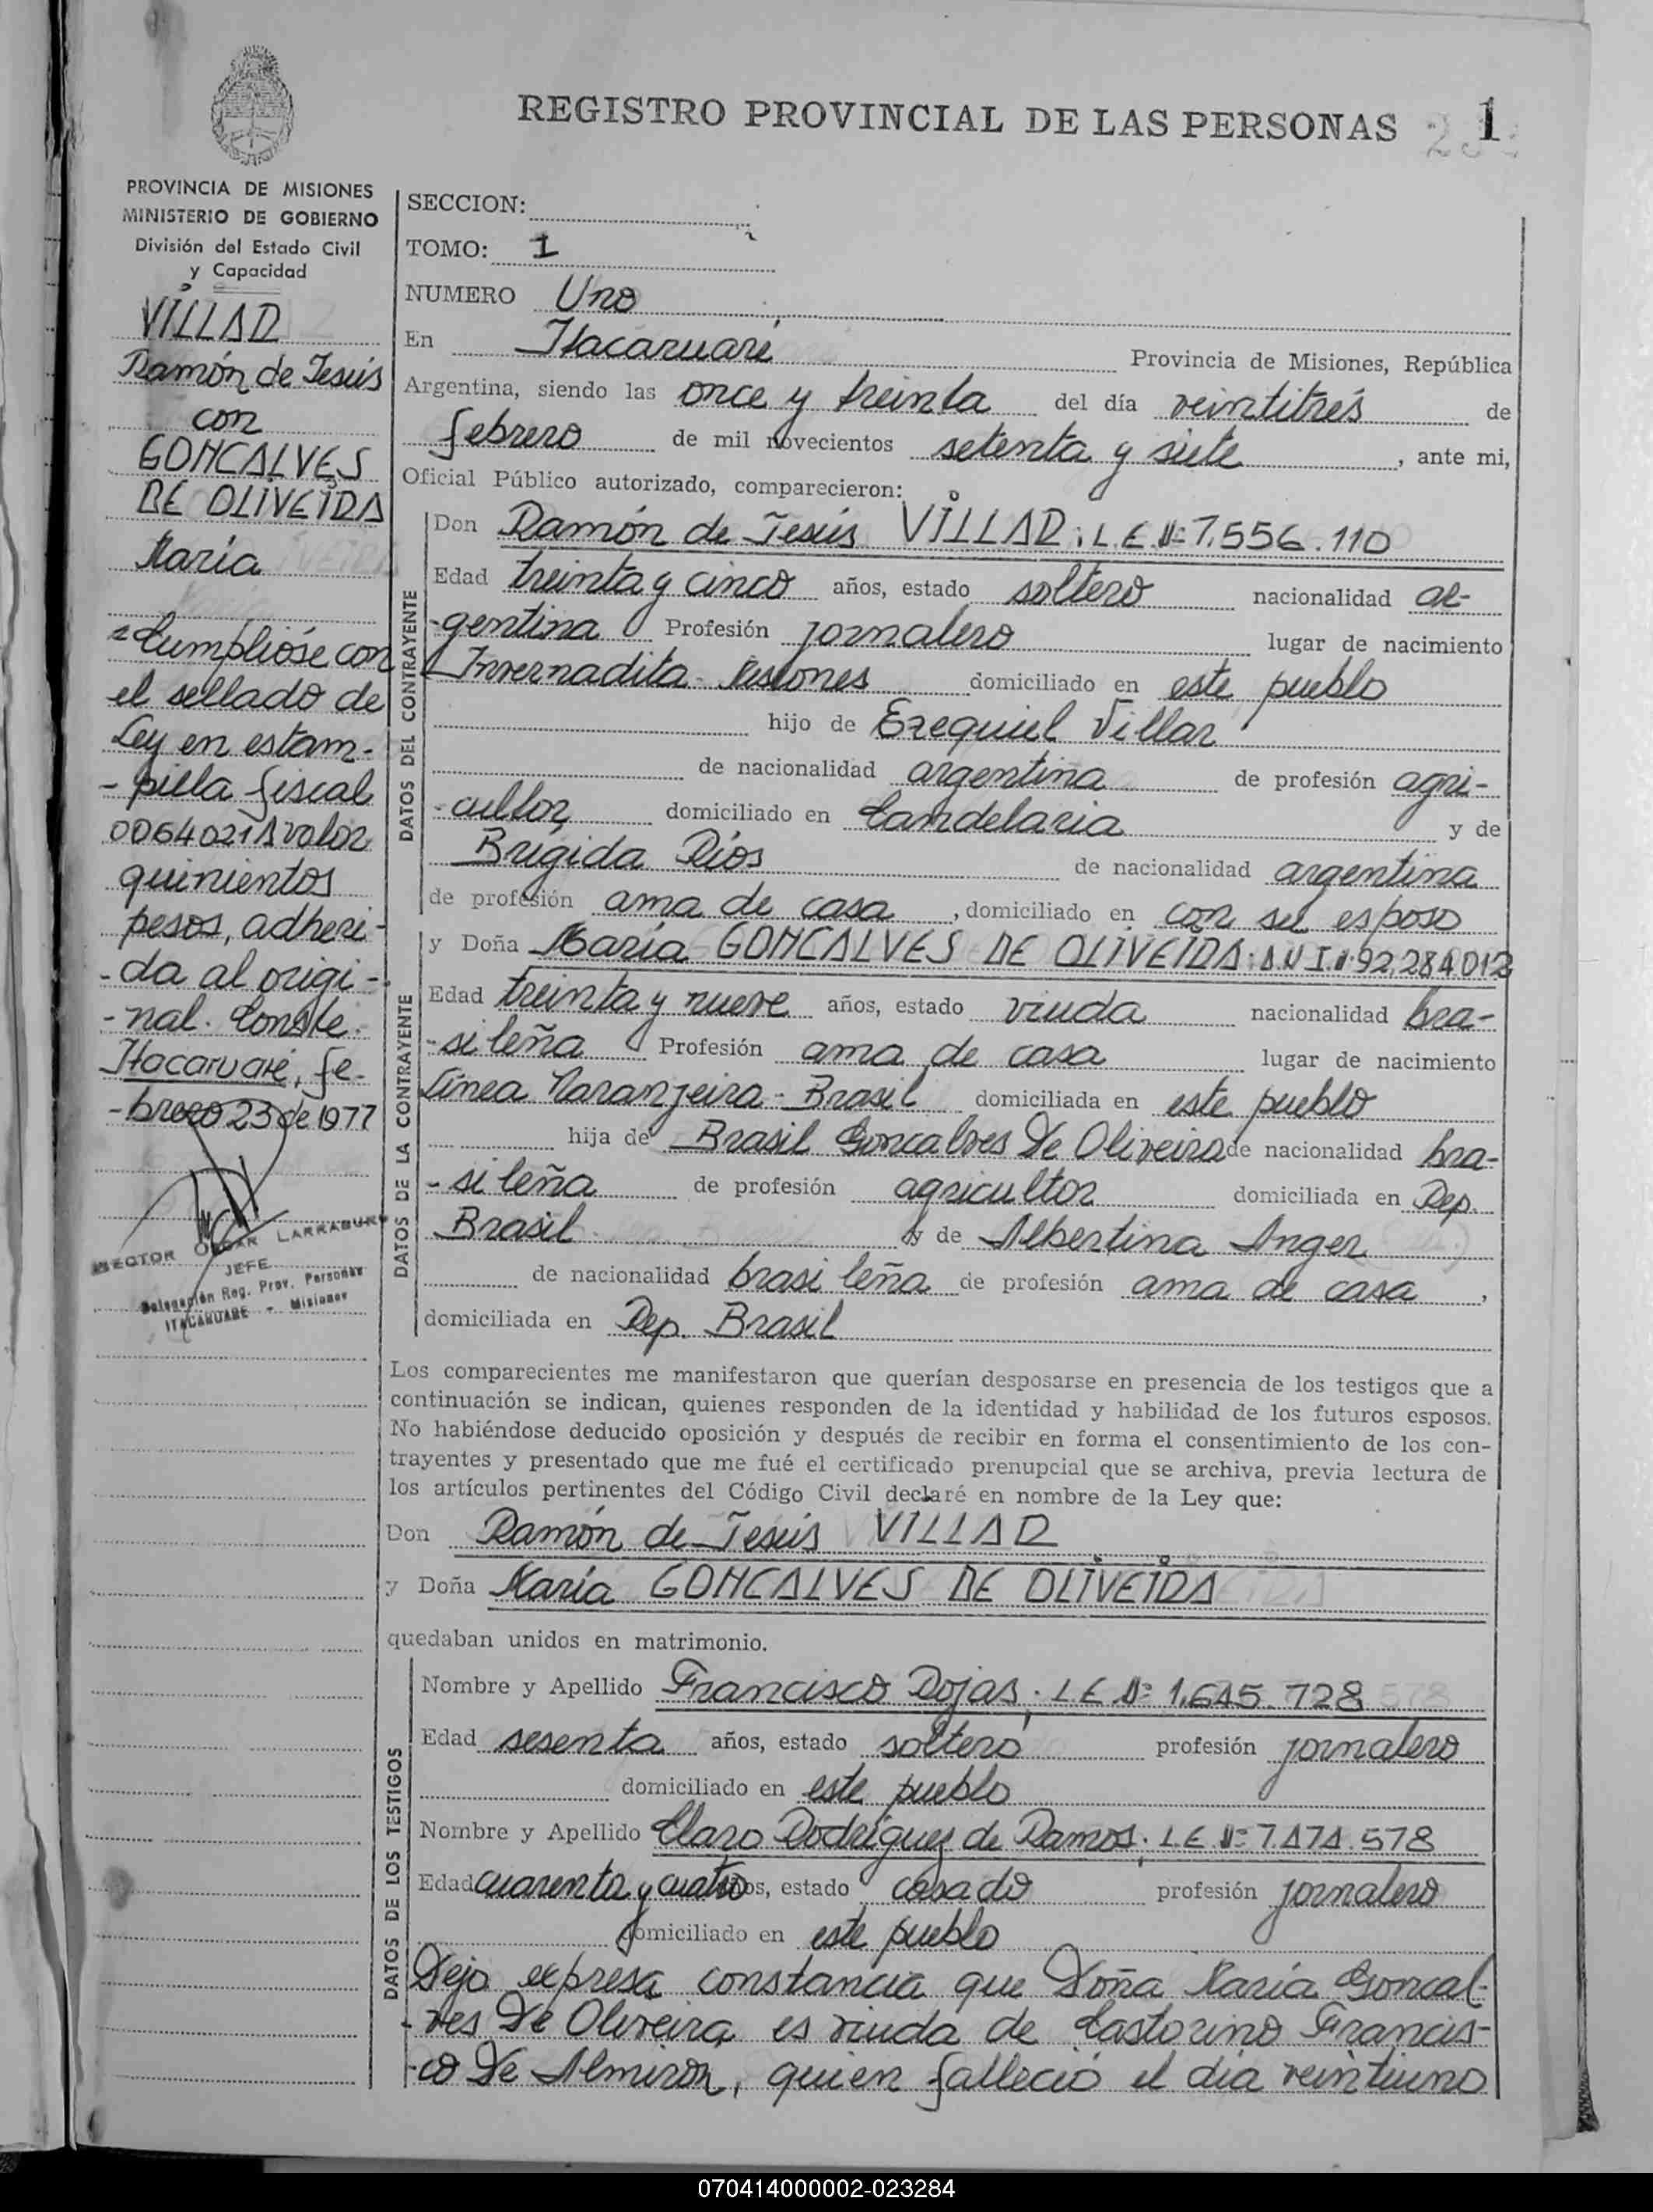 REGISTRO PROVINCIAL DE LAS PERSONAS 1
PROVINCIA DE MISIONES
MINISTERIO DE GOBIERNO
División del Estado Civil
y Capacidad
VILLAR
Ramón de Jesús
con
GONCALVES
DE OLIVEIRA
María
Cumplióse con
el sellado de
Ley en estam-
-pilla fiscal
0064021A valor
quinientos
pesos, adheri-
-da al origi-
-nal. Conste.
Itacaruaré, fe-
-brero 23 de 1977
HECTOR OSCAR LARRABURU
JEFE
Delegación Reg. Prov. Personas
ITACARUARE - Misiones
SECCION:
TOMO: 1
NUMERO Uno
En Itacaruaré Provincia de Misiones, República
Argentina, siendo las once y treinta del día veintitrés de
febrero de mil novecientos setenta y siete, ante mi,
Oficial Público autorizado, comparecieron:
DATOS DEL CONTRAYENTE
Don Ramón de Jesús VILLAR; L.E.Nº 7.556.110
Edad treinta y cinco años, estado soltero nacionalidad ar-
-gentina Profesión jornalero lugar de nacimiento
Invernadita - Misiones domiciliado en este pueblo
hijo de Ezequiel Villar
de nacionalidad argentina de profesión agri-
-cultor domiciliado en Candelaria y de
Brígida Ríos de nacionalidad argentina
de profesión ama de casa, domiciliado en con su esposo
DATOS DE LA CONTRAYENTE
y Doña María GONCALVES DE OLIVEIRA; D.N.I.Nº 92.284.012
Edad treinta y nueve años, estado viuda nacionalidad bra-
-sileña Profesión ama de casa lugar de nacimiento
Línea Naranjeira - Brasil domiciliada en este pueblo
hija de Brasil Goncalves De Oliveira de nacionalidad bra-
-sileña de profesión agricultor domiciliada en Rep.
Brasil y de Albertina Anger
de nacionalidad brasileña de profesión ama de casa,
domiciliada en Rep. Brasil
Los comparecientes me manifestaron que querían desposarse en presencia de los testigos que a
continuación se indican, quienes responden de la identidad y habilidad de los futuros esposos.
No habiéndose deducido oposición y después de recibir en forma el consentimiento de los con-
trayentes y presentado que me fué el certificado prenupcial que se archiva, previa lectura de
los artículos pertinentes del Código Civil declaré en nombre de la Ley que:
Don Ramón de Jesús VILLAR
y Doña María GONCALVES DE OLIVEIRA
quedaban unidos en matrimonio.
DATOS DE LOS TESTIGOS
Nombre y Apellido Francisco Rojas; L.E.Nº 1.645.728
Edad sesenta años, estado soltero profesión jornalero
domiciliado en este pueblo
Nombre y Apellido Claro Rodríguez de Ramos; L.E.Nº 7.474.578
Edad cuarenta y cuatro años, estado casado profesión jornalero
domiciliado en este pueblo
Dejo expresa constancia que Doña María Goncal-
-ves De Oliveira es viuda de Castorino Francis-
-co De Almiron, quien falleció el día veintiuno
070414000002-023284